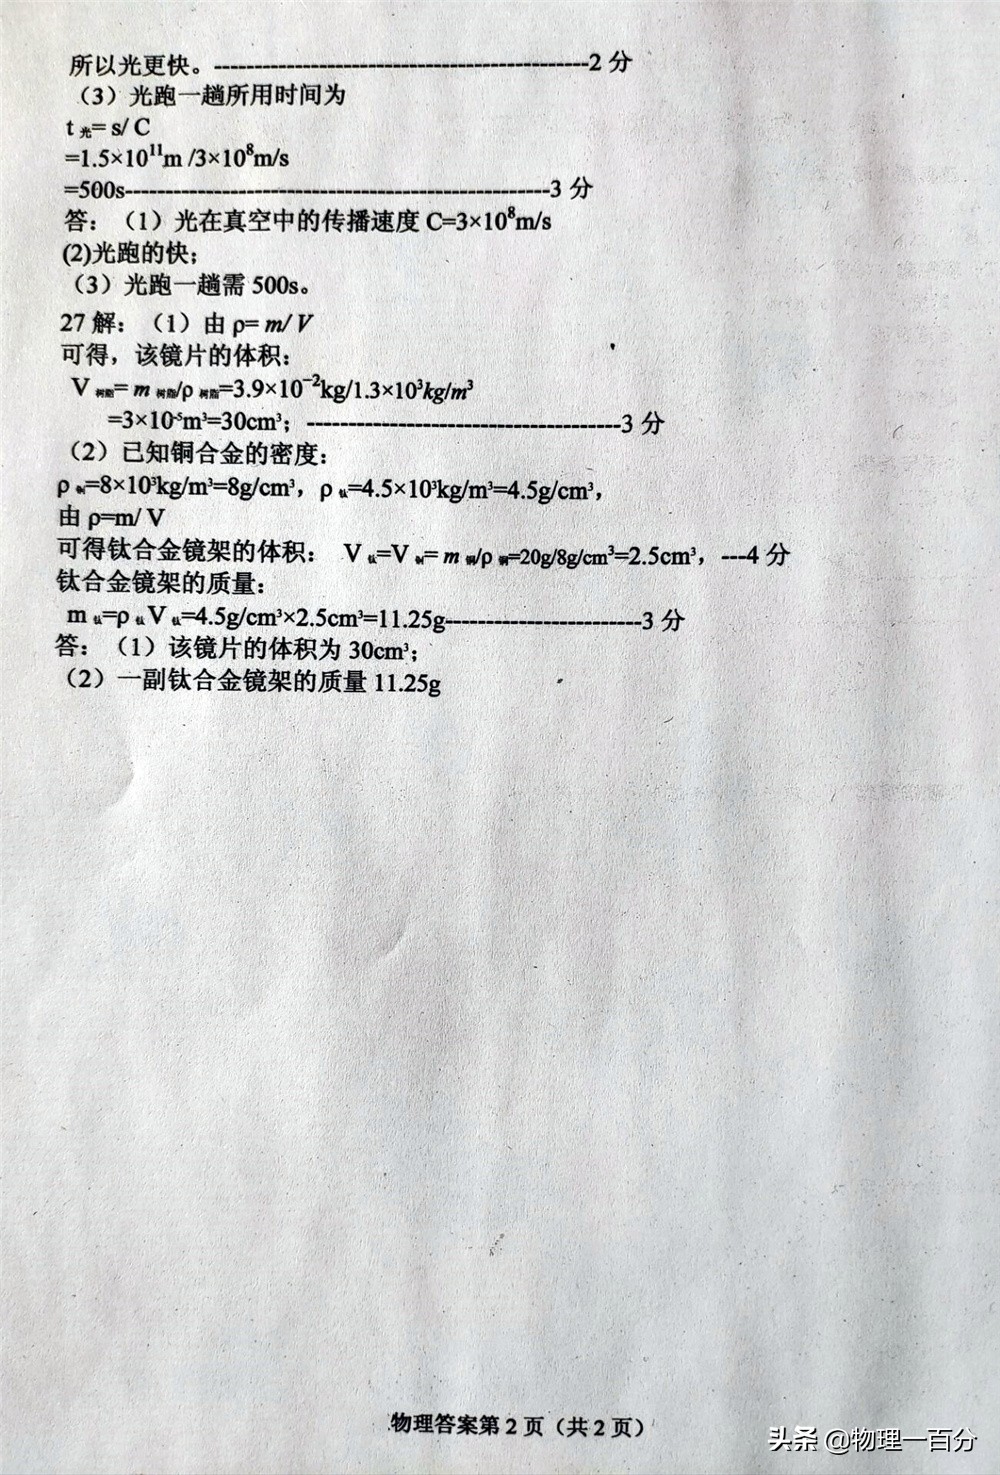 所以光更快。-----------------------------------------------2 分
（3）光跑一趟所用时间为
t 光= s/ C
=1.5×10¹¹m /3×10⁸m/s
=500s-----------------------------------------------------3 分
答：（1）光在真空中的传播速度 C=3×10⁸m/s
(2)光跑的快；
（3）光跑一趟需 500s。
27 解：（1）由 ρ= m/ V
可得，该镜片的体积：
V 树脂= m 树脂/ρ 树脂=3.9×10⁻²kg/1.3×10³kg/m³
=3×10⁻⁵m³=30cm³；---------------------------------------3 分
（2）已知铜合金的密度：
ρ 铜=8×10³kg/m³=8g/cm³，ρ 钛=4.5×10³kg/m³=4.5g/cm³，
由 ρ=m/ V
可得钛合金镜架的体积： V 钛=V 铜= m 铜/ρ 铜=20g/8g/cm³=2.5cm³，---4 分
钛合金镜架的质量：
m 钛=ρ 钛 V 钛=4.5g/cm³×2.5cm³=11.25g------------------------3 分
答：（1）该镜片的体积为 30cm³；
（2）一副钛合金镜架的质量 11.25g
物理答案第 2 页（共 2 页）
头条 @物理一百分